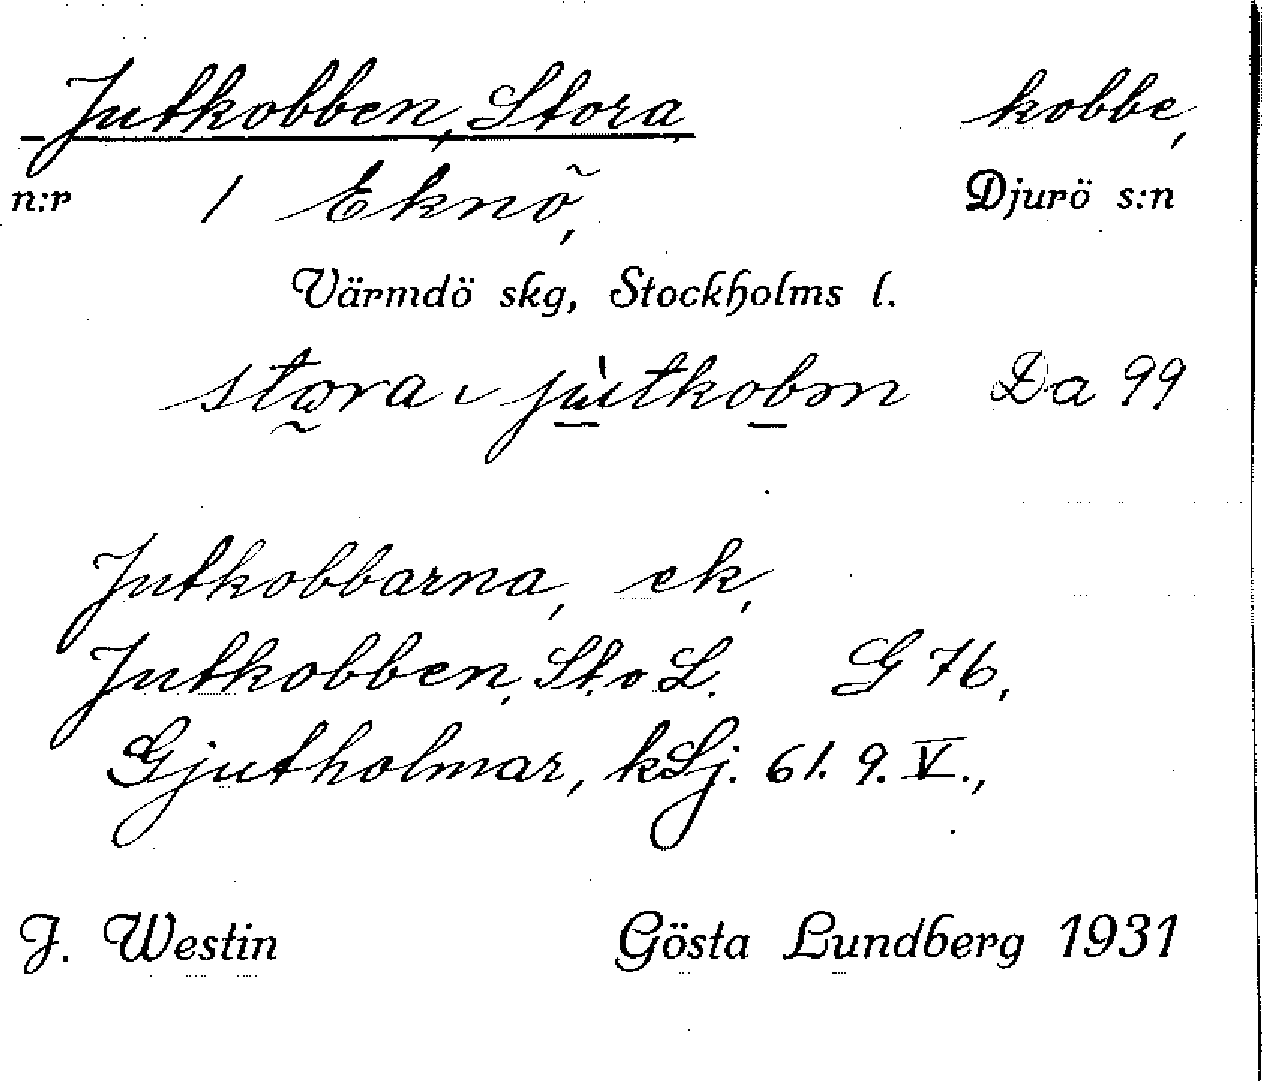 Jutkobben, Stora kobbe,
n:r 1 Eknö, Djurö s:n
Värmdö skg, Stockholms l.
Da 99
Jutkobbarna, ek,
Jutkobben, St. o L. G 76,
Gjutholmar, kLj. 61. 9. V.,
J. Westin Gösta Lundberg 1931